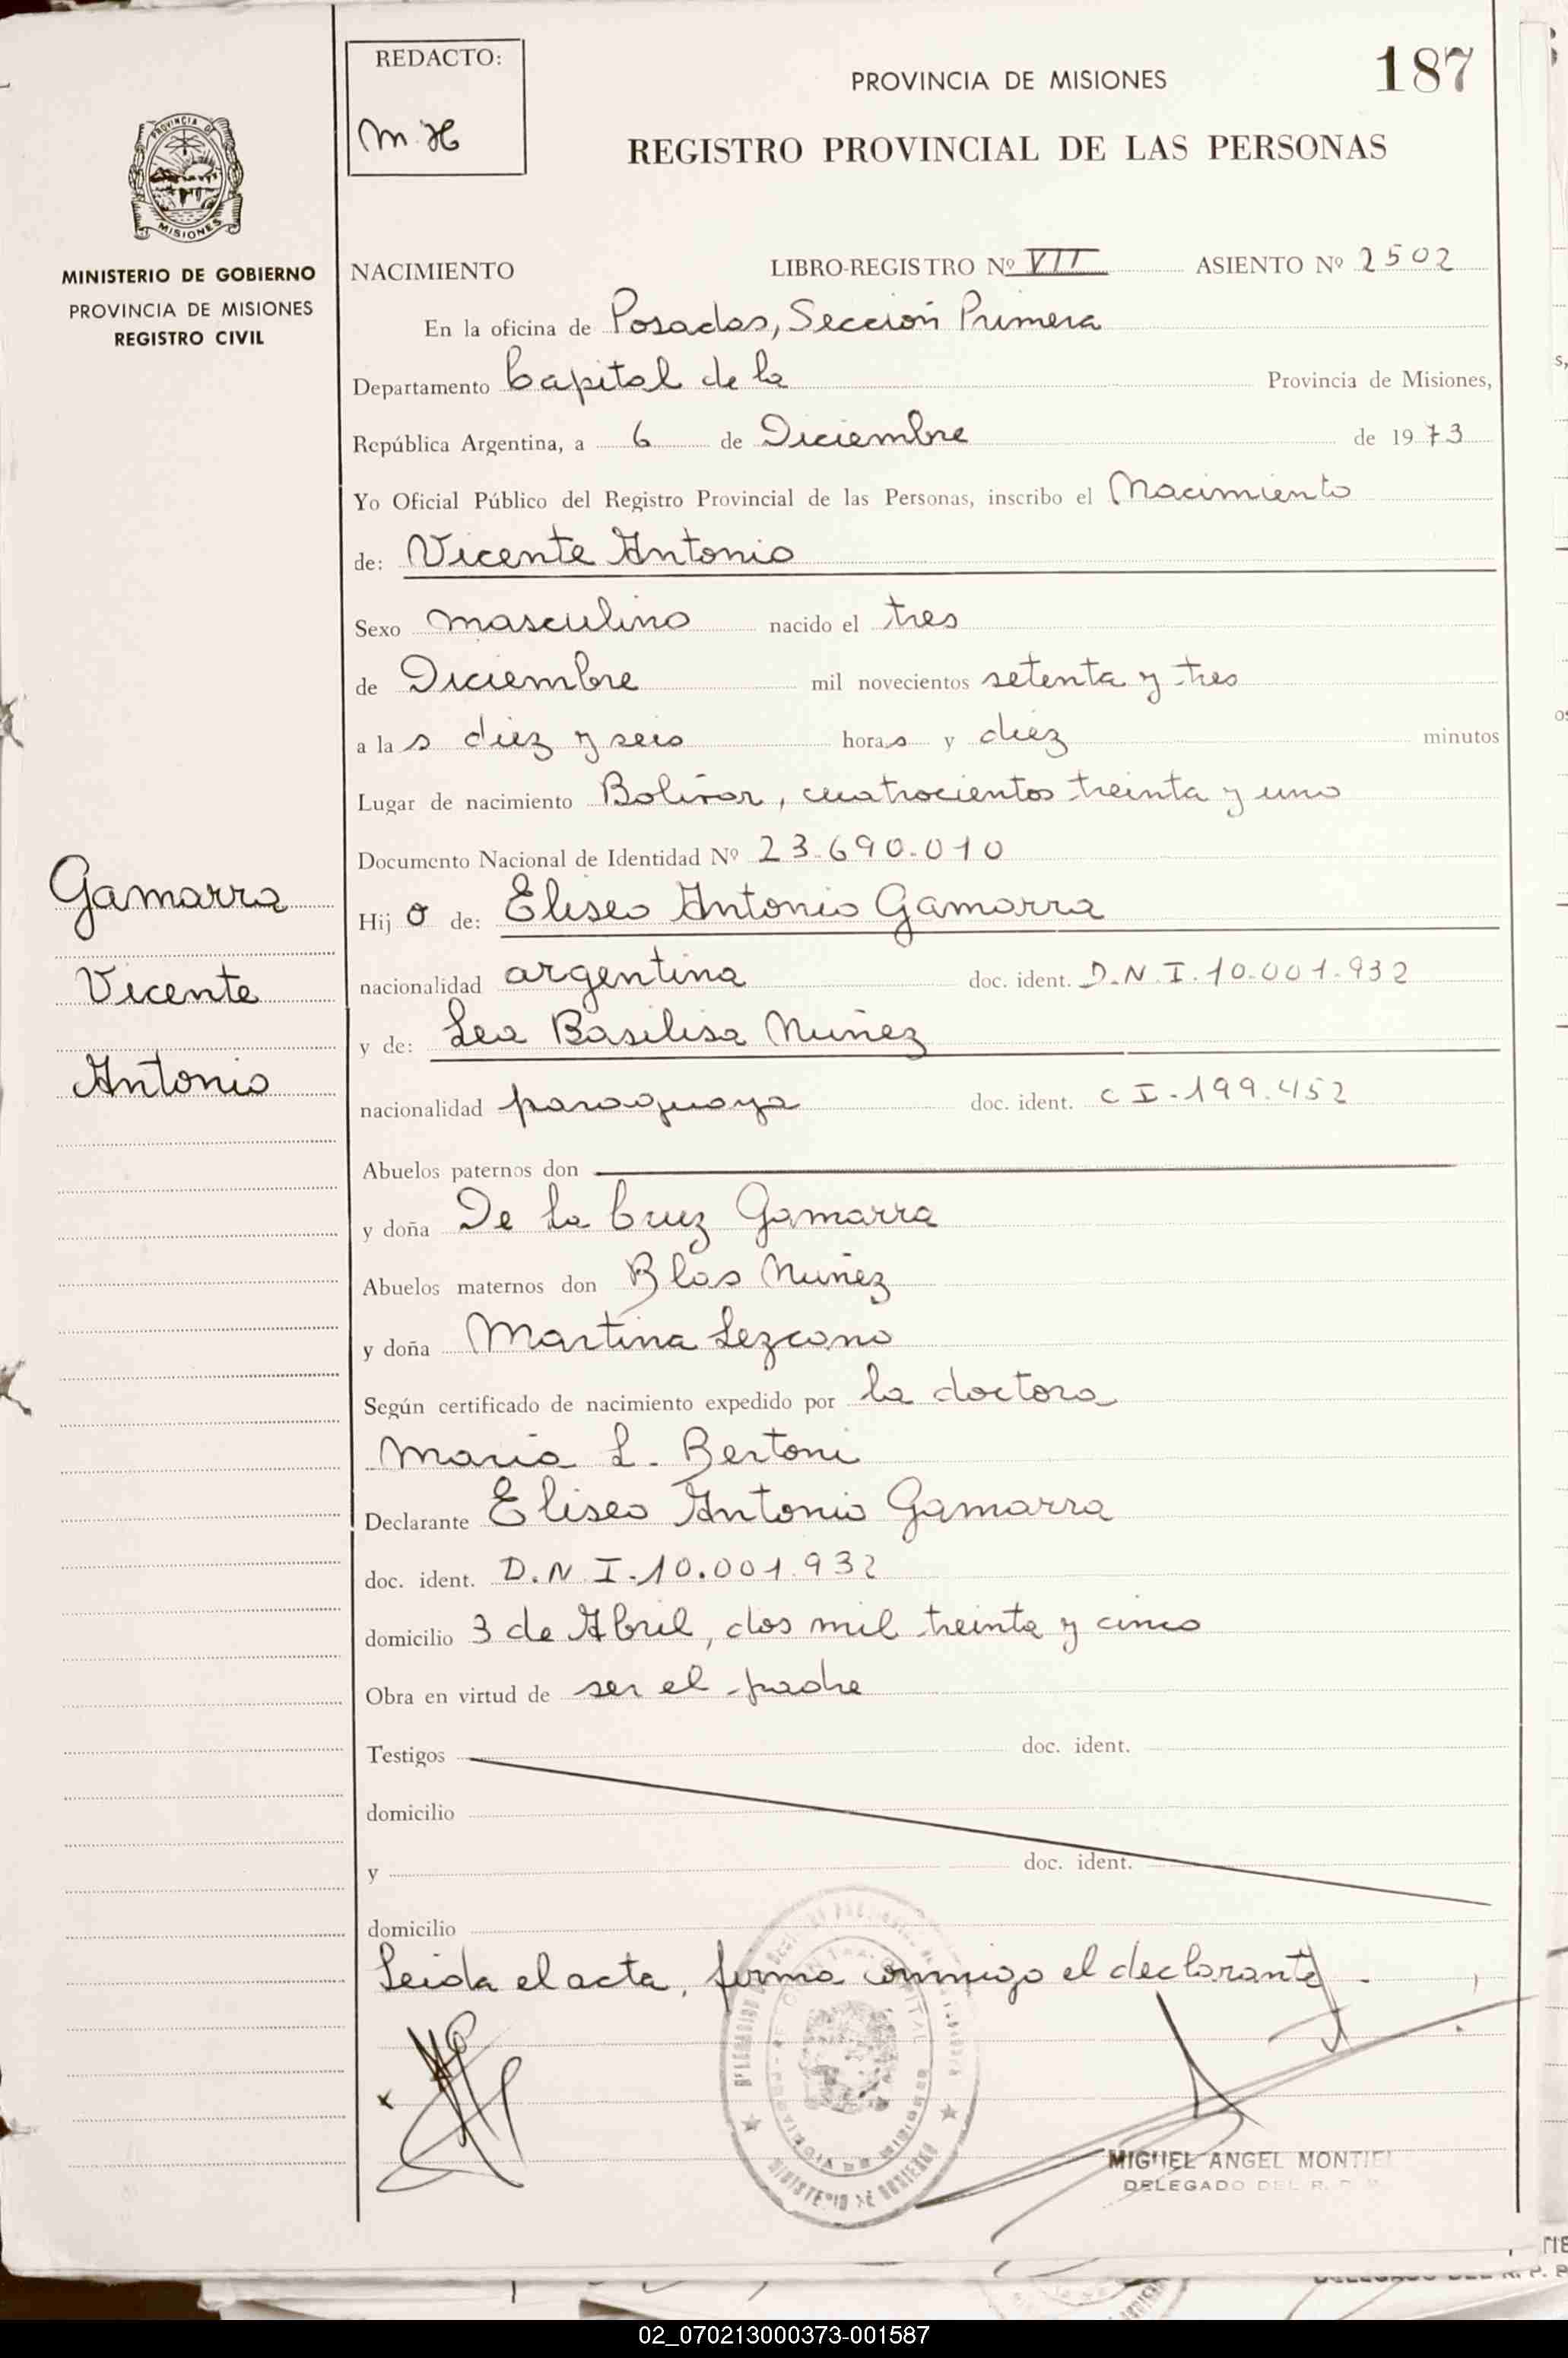 REDACTO:
M.H
PROVINCIA DE MISIONES
187
REGISTRO PROVINCIAL DE LAS PERSONAS
PROVINCIA DE
MISIONES
MINISTERIO DE GOBIERNO
PROVINCIA DE MISIONES
REGISTRO CIVIL
NACIMIENTO LIBRO-REGISTRO Nº VII ASIENTO Nº 2502
En la oficina de Posadas, Sección Primera
Departamento Capital de la Provincia de Misiones,
República Argentina, a 6 de Diciembre de 1973
Yo Oficial Público del Registro Provincial de las Personas, inscribo el Nacimiento
de: Vicente Antonio
Sexo masculino nacido el tres
de Diciembre mil novecientos setenta y tres
a las diez y seis horas y diez minutos
Lugar de nacimiento Bolívar, cuatrocientos treinta y uno
Documento Nacional de Identidad Nº 23.690.010
Gamarra
Vicente
Antonio
Hijo de: Eliseo Antonio Gamarra
nacionalidad argentina doc. ident. D.N.I.10.001.932
y de: Lea Basilisa Nuñez
nacionalidad paraguaya doc. ident. C I-199.452
Abuelos paternos don
y doña De la Cruz Gamarra
Abuelos maternos don Blas Nuñez
y doña Martina Lezcano
Según certificado de nacimiento expedido por la doctora
María L. Bertoni
Declarante Eliseo Antonio Gamarra
doc. ident. D.N.I-10.001.932
domicilio 3 de Abril, dos mil treinta y cinco
Obra en virtud de ser el padre
Testigos doc. ident.
domicilio
y doc. ident.
domicilio
Leida el acta, firma conmigo el declarante.-
PROVINCIA DE MISIONES
MINISTERIO DE GOBIERNO
MIGUEL ANGEL MONTIEL
DELEGADO DEL R. P.
02_070213000373-001587